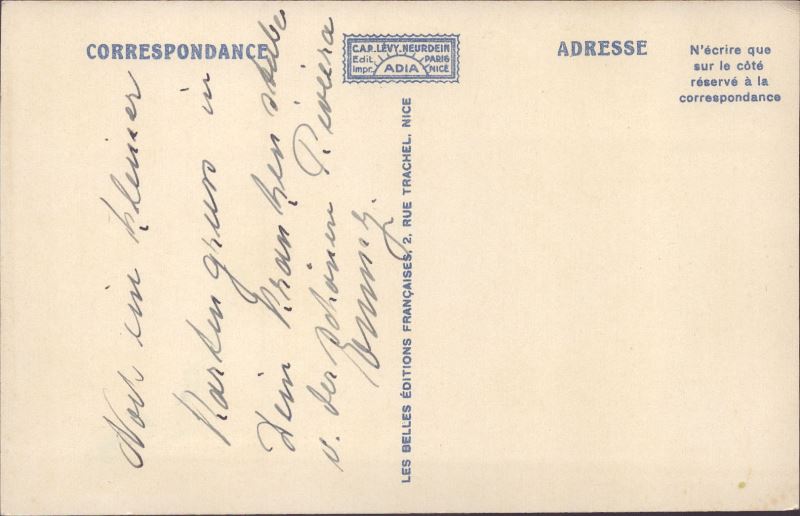 CORRESPONDANCE
C.A.P. LÉVY. NEURDEIN
Edit. PARIS
Impr. ADIA NICE
ADRESSE
N'écrire que
sur le côté
réservé à la
correspondance
Noch ein kleiner
Kartengruss in
Dein Krankenstube
v. der schönen Riviera
Emmy.
LES BELLES ÉDITIONS FRANÇAISES, 2, RUE TRACHEL, NICE